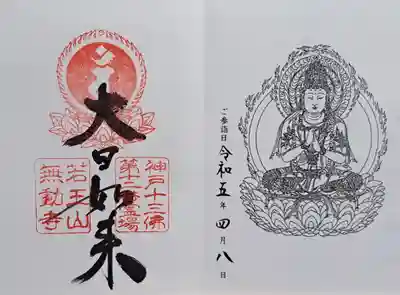 ご参詣日 令和五年四月八日
神戸十三佛
第十二番霊場
大日如来
若王山
無動寺